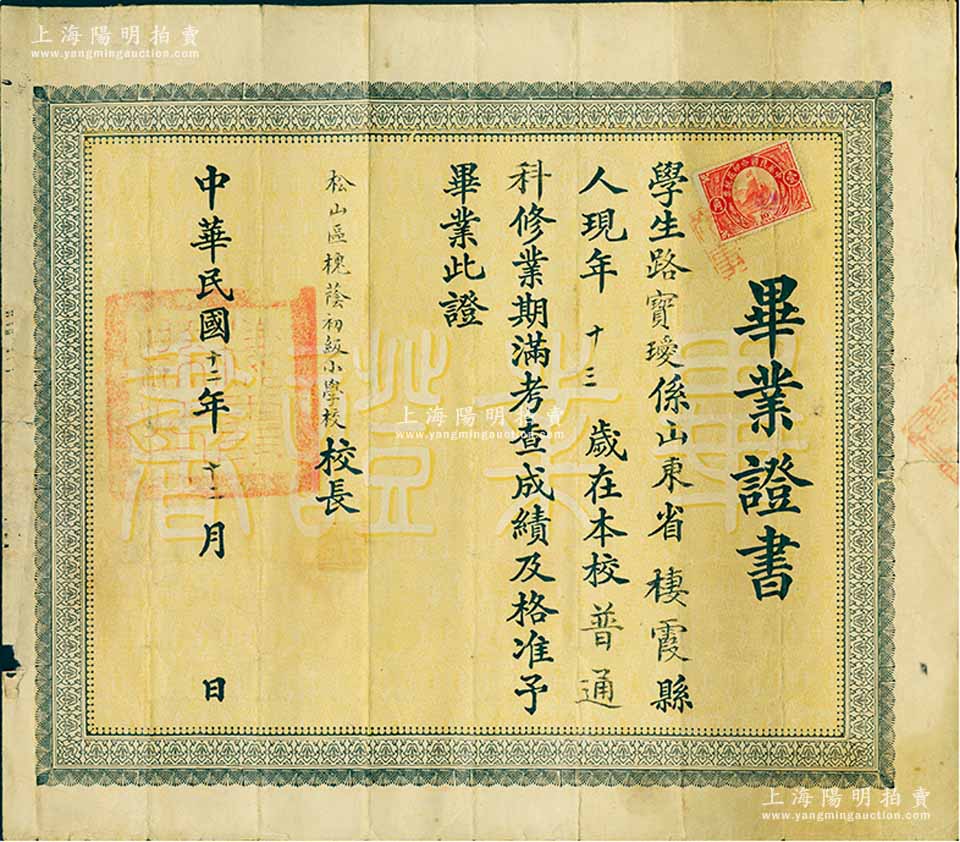 上海陽明拍賣
www.yangmingauction.com
畢業證書
學生路寶璦係山東省棲霞縣
人現年十三歲在本校普通
科修業期滿考查成績及格准予
畢業此證
松山區槐蔭初級小學校校長
中華民國十二年十二月 日
畢業證書
上海陽明拍賣
www.yangmingauction.com
上海陽明拍賣
www.yangmingauction.com